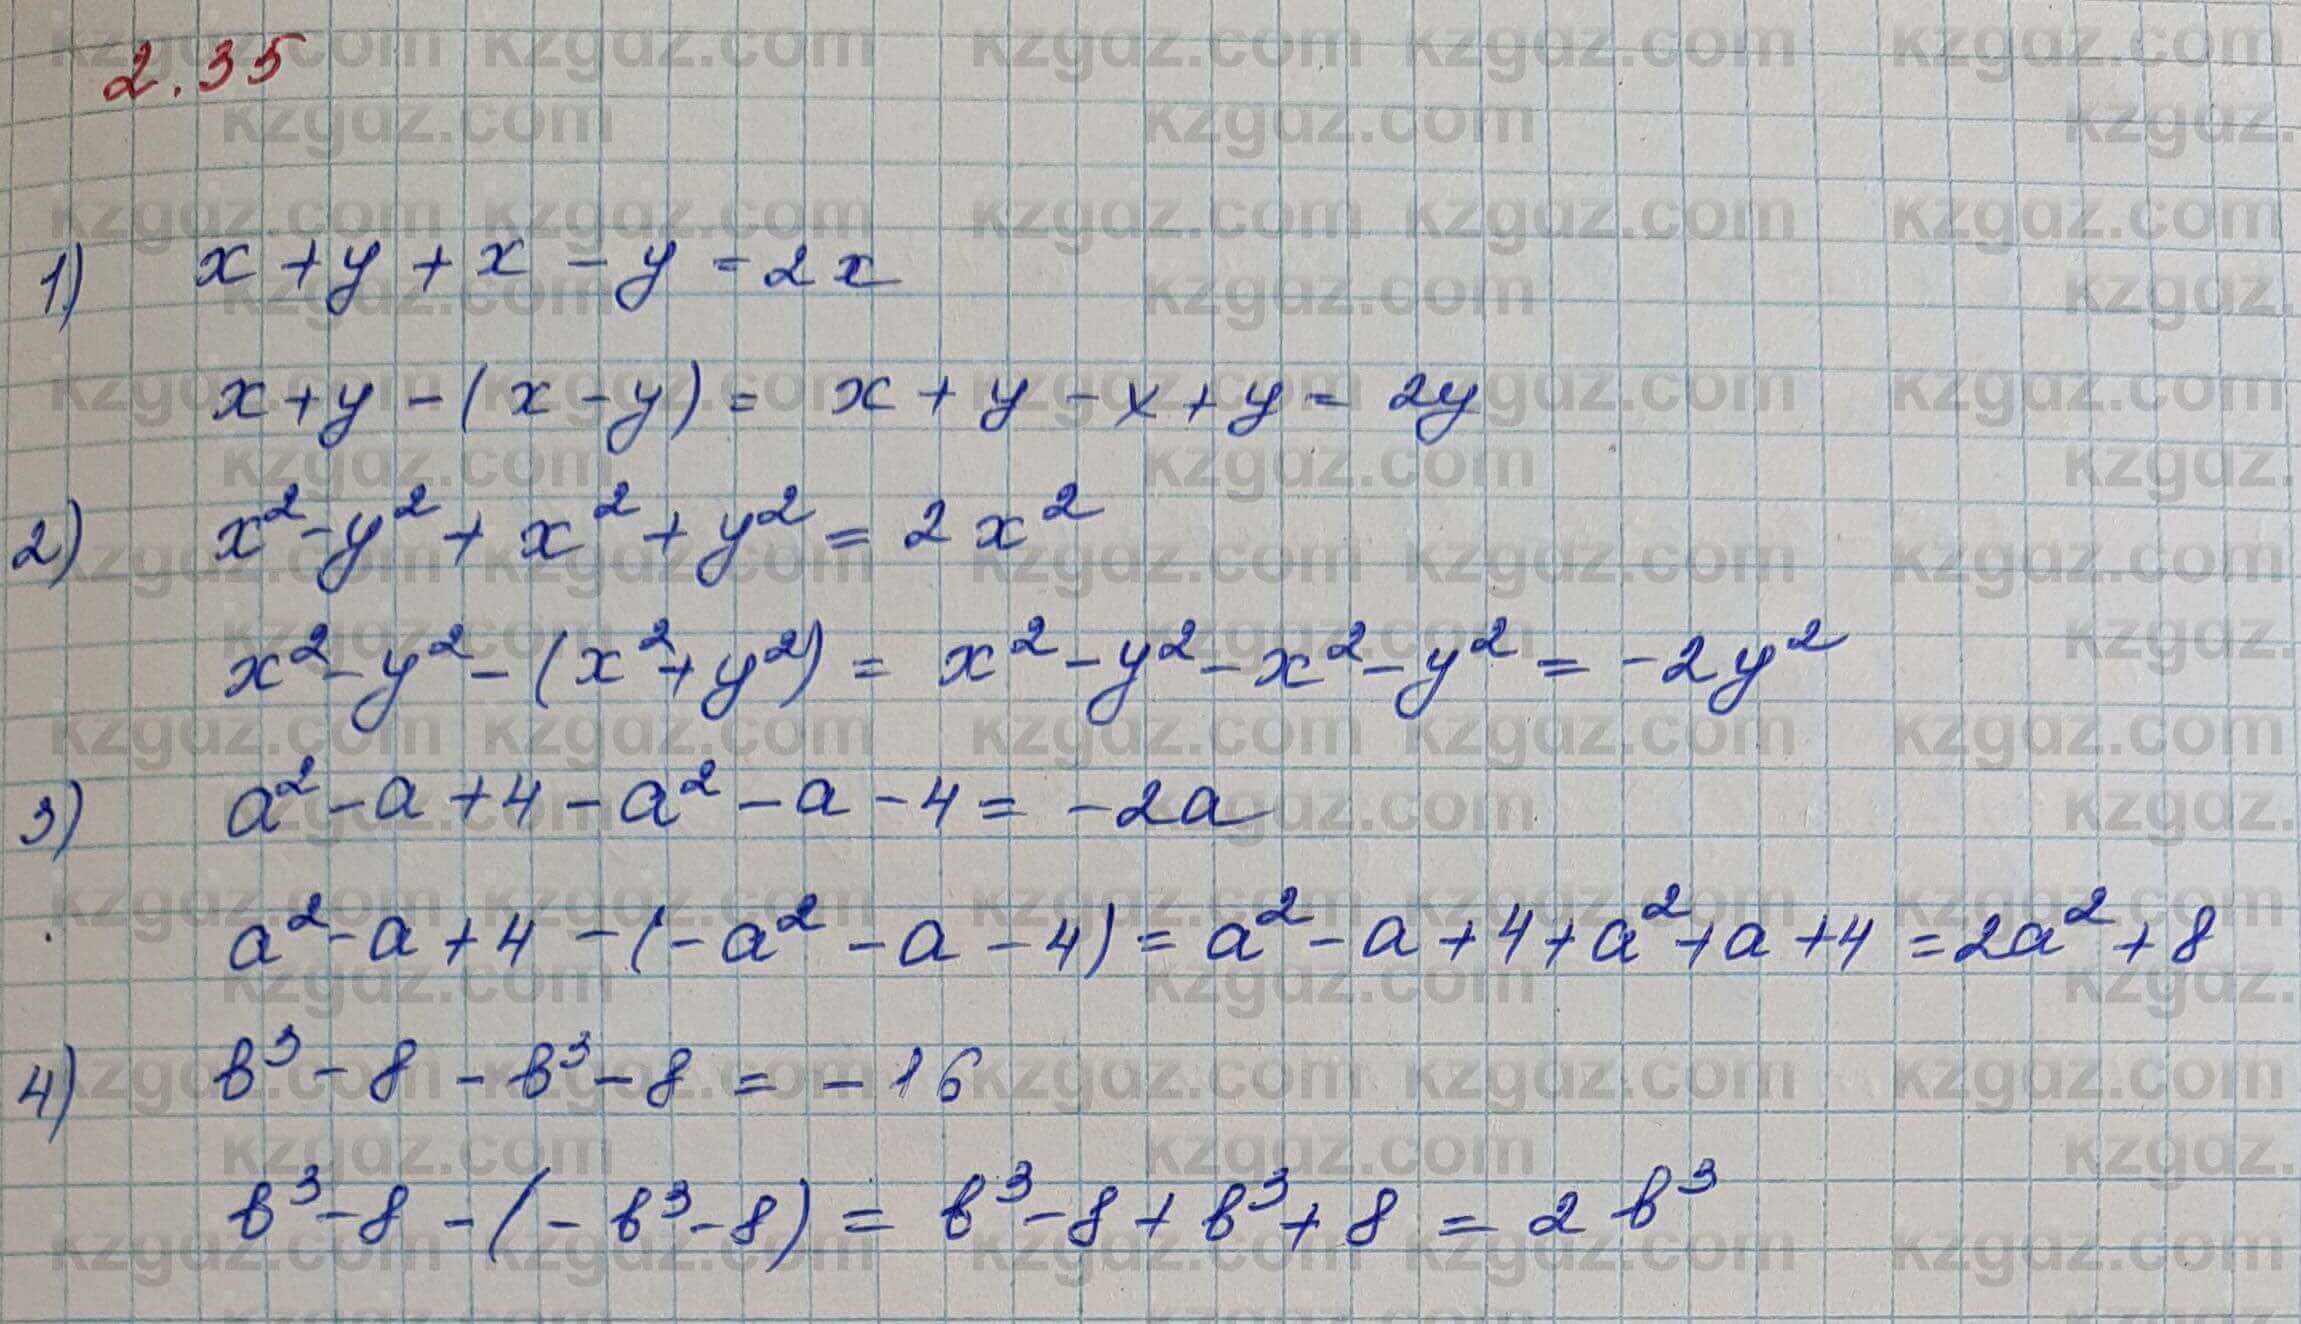 2.35
1) x + y + x - y = 2x
x + y - (x - y) = x + y - x + y = 2y
2) x² - y² + x² + y² = 2x²
x² - y² - (x² + y²) = x² - y² - x² - y² = -2y²
3) a² - a + 4 - a² - a - 4 = -2a
a² - a + 4 - (-a² - a - 4) = a² - a + 4 + a² + a + 4 = 2a² + 8
4) b³ - 8 - b³ - 8 = -16
b³ - 8 - (-b³ - 8) = b³ - 8 + b³ + 8 = 2b³
kzgdz.com